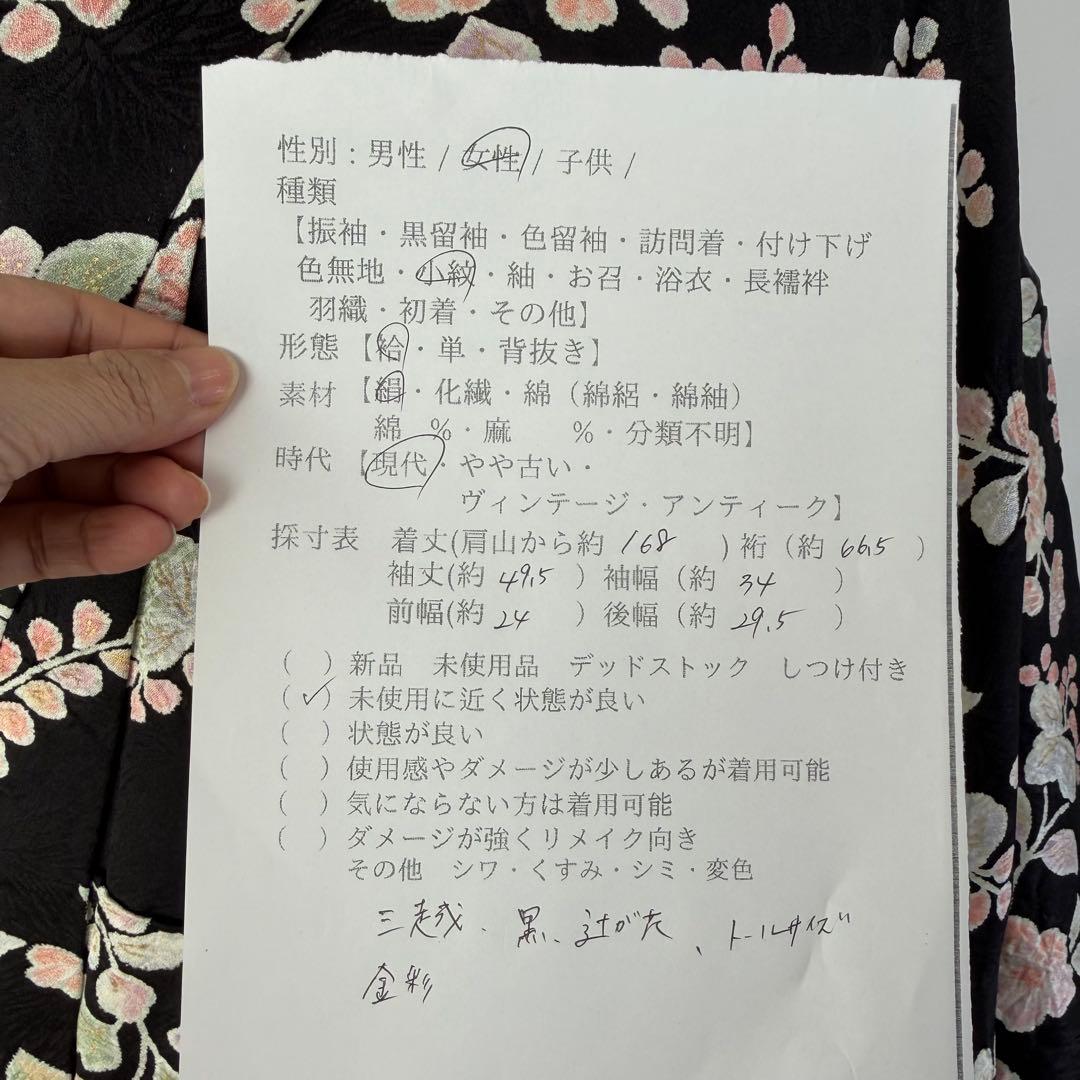 性別：男性 / 女性 / 子供 /
種類
【振袖・黒留袖・色留袖・訪問着・付け下げ
色無地・小紋・紬・お召・浴衣・長襦袢
羽織・初着・その他】
形態 【袷・単・背抜き】
素材 【絹・化繊・綿（綿絽・綿紬）
綿 %・麻 %・分類不明】
時代 【現代・やや古い・
ヴィンテージ・アンティーク】
採寸表 着丈(肩山から約 168 ) 裄（約 66.5 ）
袖丈(約 49.5 ) 袖幅（約 34 ）
前幅(約 24 ) 後幅（約 29.5 ）
( ) 新品 未使用品 デッドストック しつけ付き
(✓) 未使用に近く状態が良い
( ) 状態が良い
( ) 使用感やダメージが少しあるが着用可能
( ) 気にならない方は着用可能
( ) ダメージが強くリメイク向き
その他 シワ・くすみ・シミ・変色
三越、黒、辻が花、トールサイズ
金彩